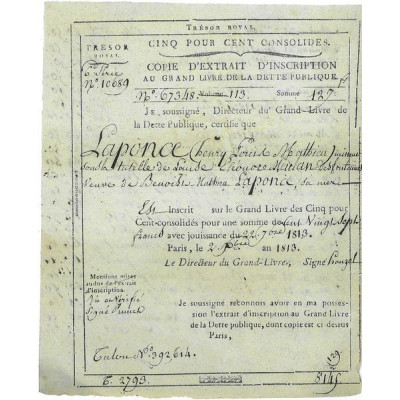 TRÉSOR ROYAL.
TRÉSOR
ROYAL.
CINQ POUR CENT CONSOLIDÉS.
COPIE D'EXTRAIT D'INSCRIPTION
AU GRAND LIVRE DE LA DETTE PUBLIQUE.
6e Série
No. 10689
No. 67348. Volume 113. Somme 127.
JE, soussigné, Directeur du Grand-Livre de
la Dette Publique, certifie que
Laponce (henry Louis Mathieu) mineur
sous la tutelle de Louise
veuve de Laponce, sa mere
Est Inscrit sur le Grand Livre des Cinq pour
Cent-consolidés pour une somme de Cent Vingt Sept
francs avec jouissance du 22 7bre 1813.
Paris, le an 1813.
Le Directeur du Grand-Livre, Signé
Mentions mises
au dos de l'extrait
d'inscription.
Vu et Vérifié
Signé
Je soussigné reconnois avoir en ma posses-
sion l'extrait d'inscription au Grand Livre
de la Dette publique, dont copie est ci dessus
Paris,
Talon No. 392614.
129.
6. 2793.
8145